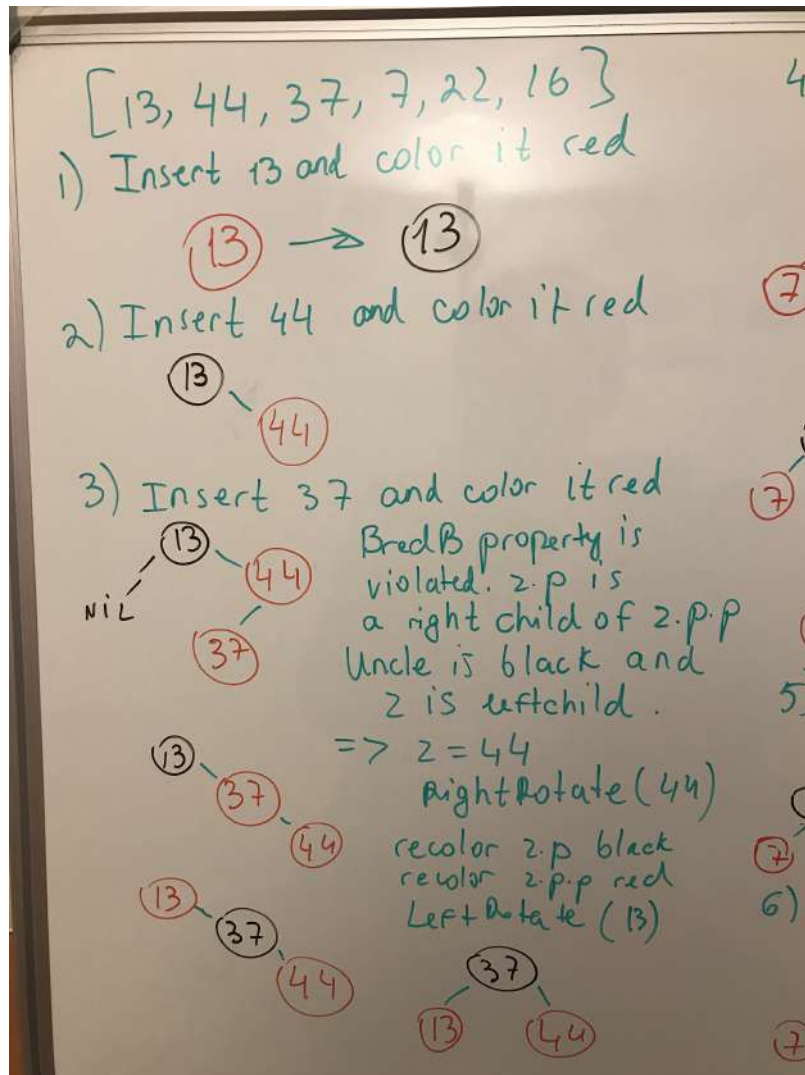 [13, 44, 37, 7, 22, 16]
1) Insert 13 and color it red
13 → 13
2) Insert 44 and color it red
13
44
3) Insert 37 and color it red
13
44
NIL
37
BredB property is
violated. z.p is
a right child of z.p.p
Uncle is black and
z is leftchild.
=> z = 44
RightRotate (44)
13
37
44
recolor z.p black
recolor z.p.p red
LeftRotate (13)
13
37
44
37
13
44
4
7
7
5)
7
6)
7